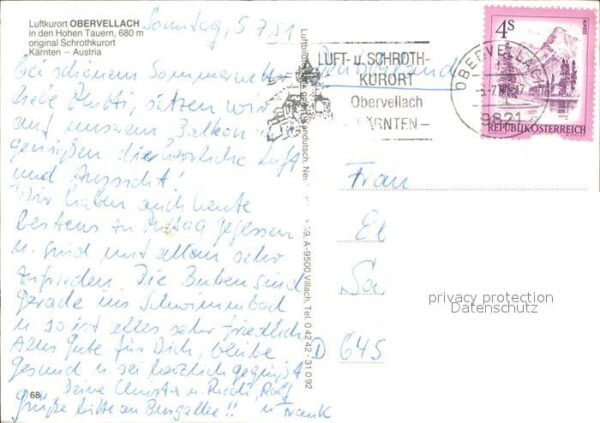 Luftkurort OBERVELLACH
in den Hohen Tauern, 680 m
original Schrothkurort
Kärnten – Austria
Sonntag, 5.7.81
Bei schönem Sommerwetter
liebe Mutti, sitzen wir
auf unserem Balkon u.
genießen die herrliche Luft
und Aussicht!
Wir haben auch heute
bestens zu Mittag gegessen
u. sind mit allem sehr
zufrieden. Die Buben sind
gerade im Schwimmbad
u. so ist alles sehr friedlich.
Alles Gute für Dich, bleibe
gesund u. sei herzlich gegrüßt
Deine Christa u. Rudi, Ralf
u. Frank
Grüße bitte an !!
68
A-9500 Villach, Tel. 0 42 42 - 31 0 92
LUFT- u. SCHROTH-
KURORT
Obervellach
– KÄRNTEN –
Deutschland
OBERVELLACH
9821
4S
REPUBLIK ÖSTERREICH
Frau
El
Sa
D 645
privacy protection
Datenschutz